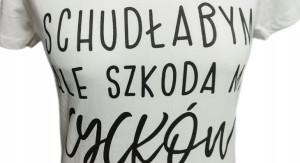 SCHUDŁABYM
ALE SZKODA MI
CYCKÓW